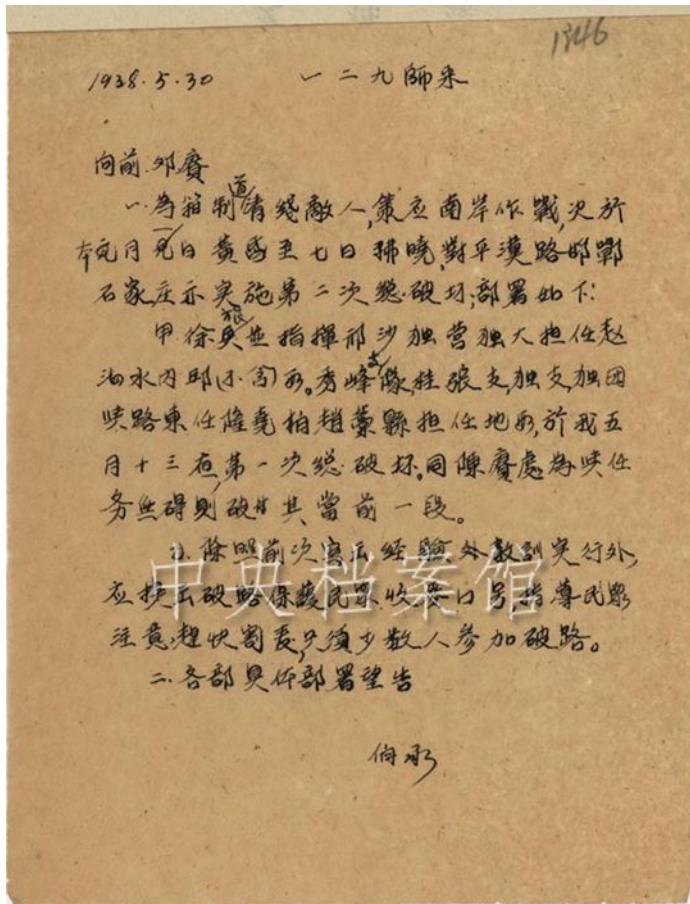 1346
1938.5.30 一二九師来
向前.邓賡
一.為箝制道清綫敵人,策应南岸作戰,决於
本月日黄昏至七日拂曉,對平漢路邯鄲
石家庄亦实施第二次總破坏,部署如下:
甲.徐並指揮邢沙独营独大担任赵
水内邱(不含)段。秀峰支隊,桂張支,独支,独团
路東任隆堯柏趙藁縣担任地段,於我五
月十三夜,第一次總破坏,同陳賡處為任
务無碍則破其當前一段。
除照前次寔際经驗教訓实行外,
应提出破路保護民眾收麥口号,指導民眾
注意趕快割麦,只须少数人参加破路。
二.各部具体部署望告
伯承
中央档案馆